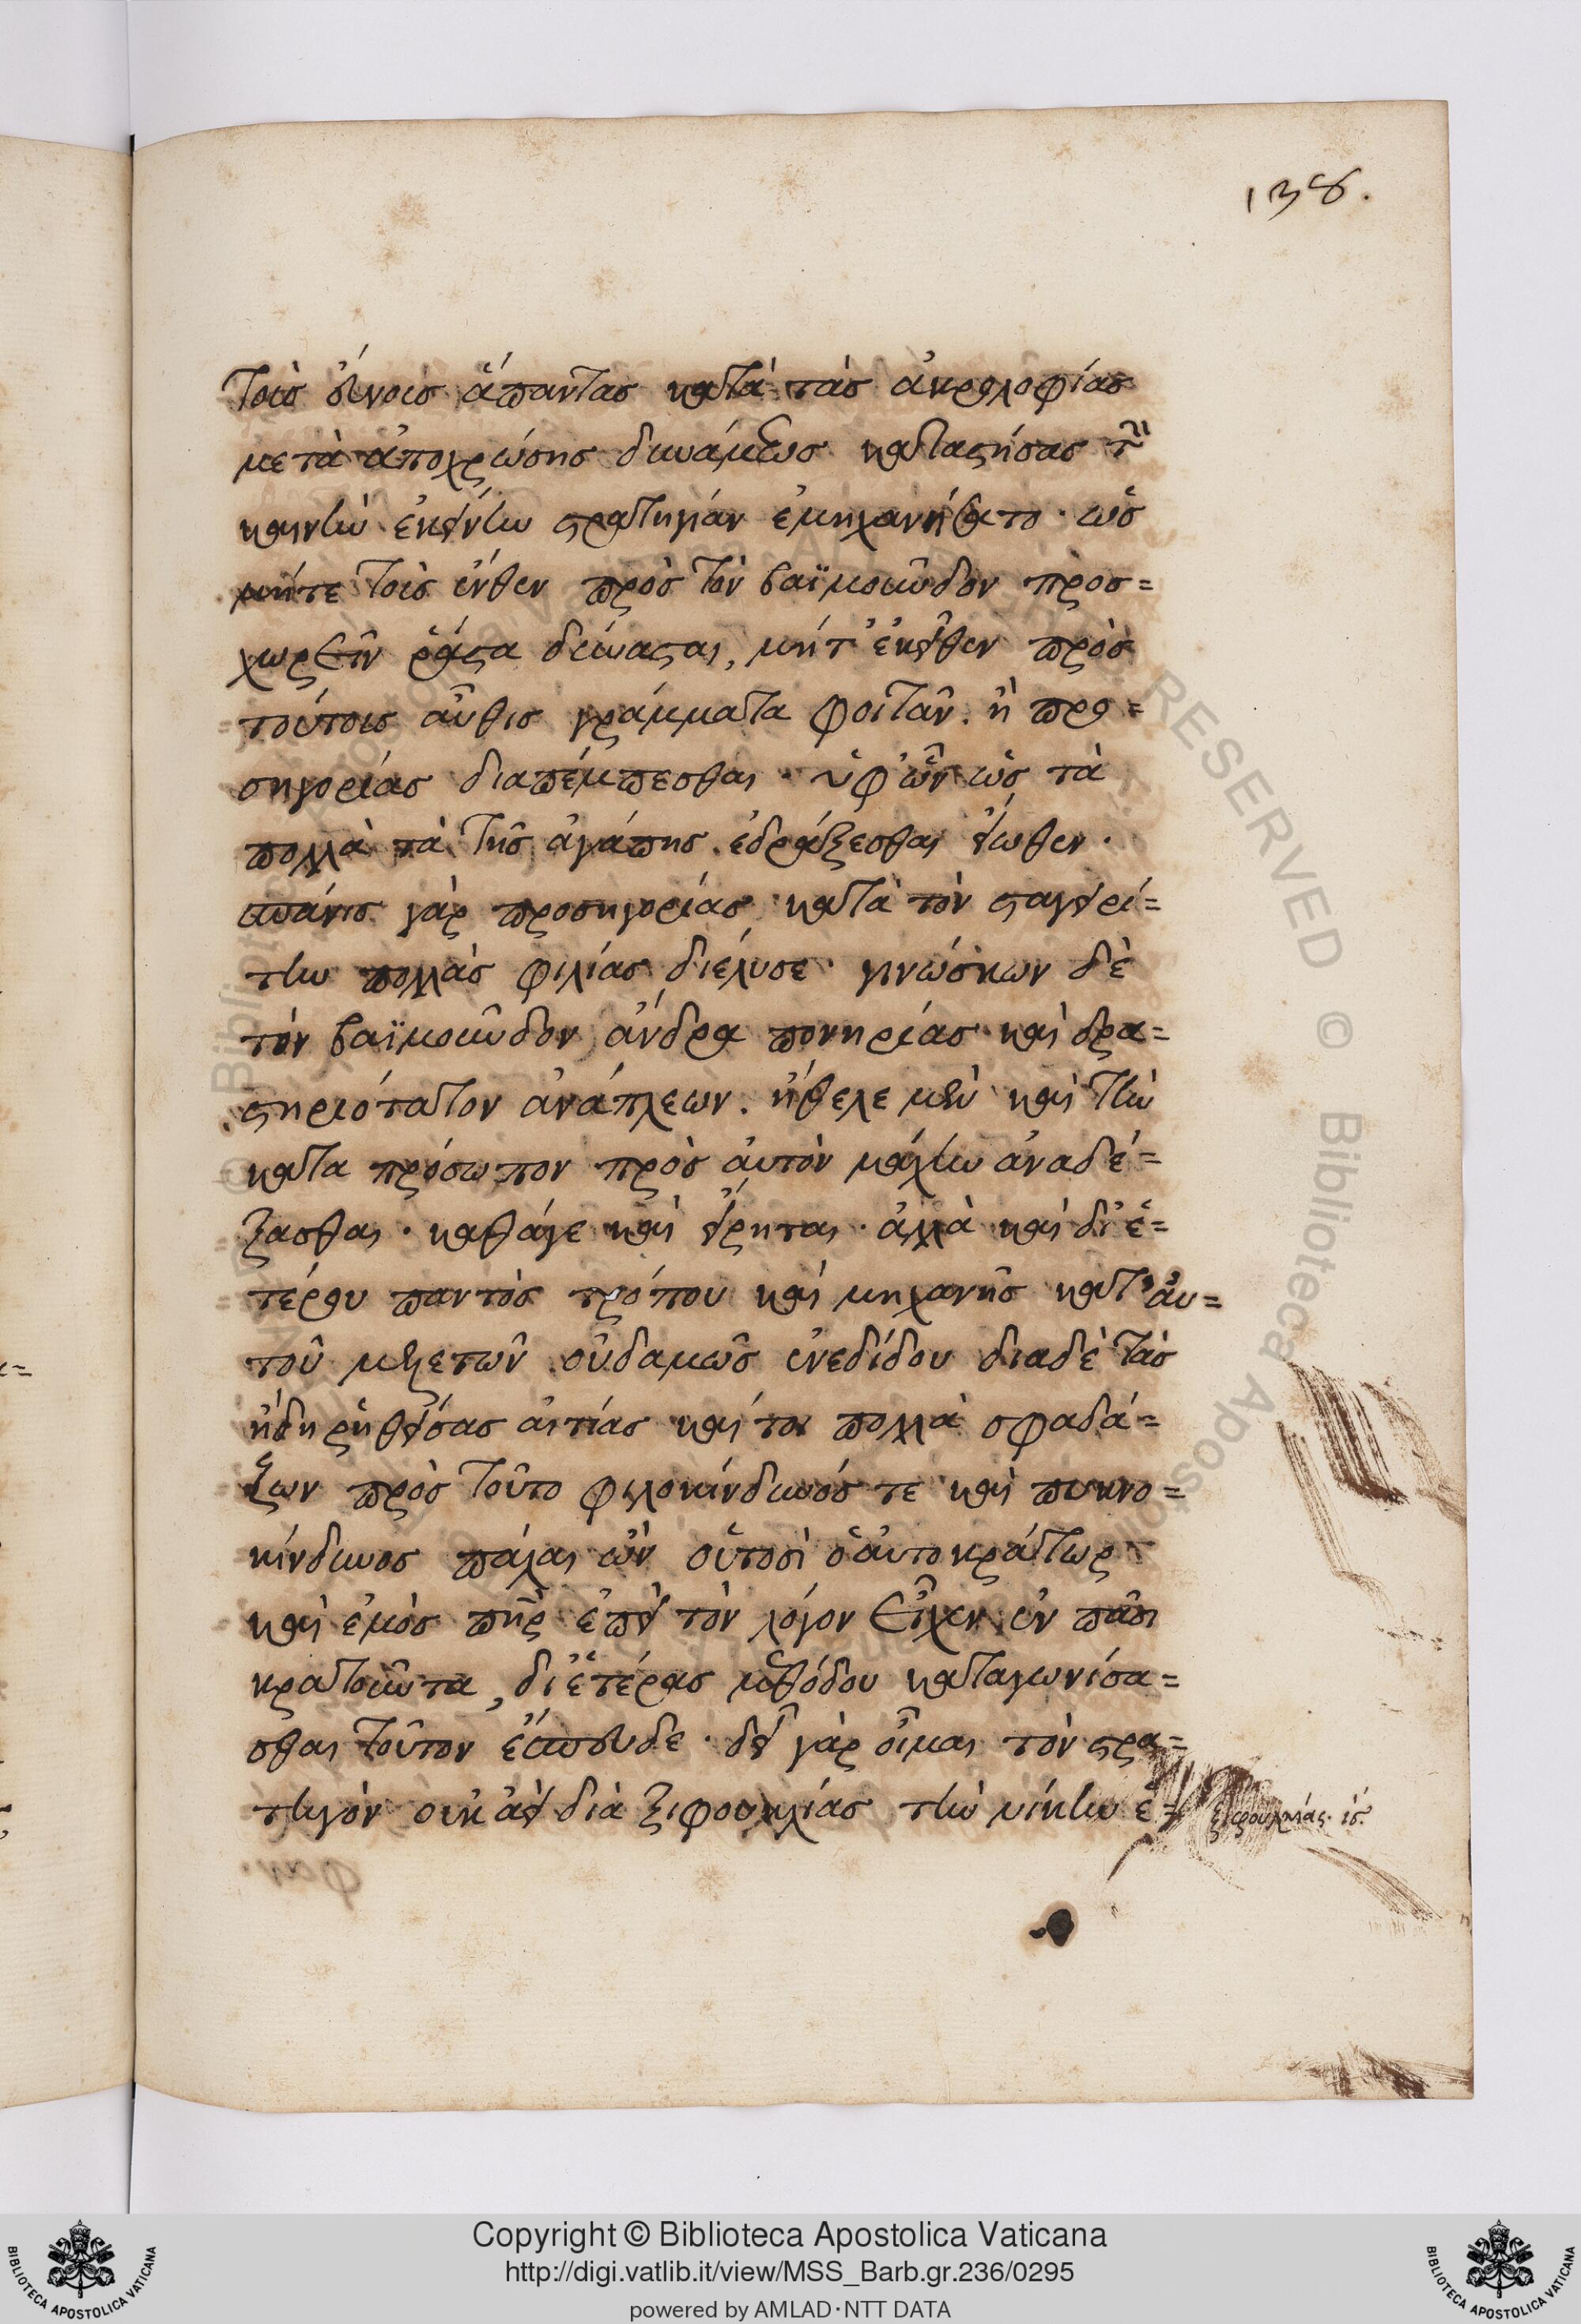 138.
τοὺς ἐκείνοις ἅπαντας κατὰ τὰς ἀκρολοφίας
μετὰ ἀποχρώσης δυνάμεως καταστήσας τὴν
καινὴν ἐκείνην στρατηγίαν ἐμηχανήσατο· ὡς
μήτε τοὺς ἔνθεν πρὸς τὸν βαϊμοῦνδον προσ=
χωρεῖν ῥᾷστα δύνασται, μήτ' ἐκεῖθεν πρὸς
τούτοις αὖθις γράμματα φοιτᾶν. ἢ προ=
σηγορίας διαπέμπεσθαι· ὑφ' ὧν ὡς τὰ
πολλὰ τὰ τῆς ἀγάπης ἑδράζεσθαι εἴωθεν.
σπάνις γὰρ προσηγορίας κατὰ τὸν σταγειρί=
την πολλὰς φιλίας διέλυσε· γινώσκων δὲ
τὸν βαϊμοῦνδον ἄνδρα πονηρίας καὶ δρα=
στηριότατον ἀνάπλεων. ἤθελε μὲν καὶ τὴν
κατα πρόσωπον πρὸς αὐτὸν μάχην ἀναδέ=
ξασθαι· καθάγε καὶ εἴρηται· ἀλλὰ καὶ δι' ἑ=
τέρου παντὸς τρόπου καὶ μηχανῆς κατ' αὐ=
τοῦ μελετῶν οὐδαμῶς ἐνεδίδου διαδὲ τὰς
ἤδη ῥηθείσας αἰτίας καί τοι πολλὰ σφαδά=
ζων πρὸς τοῦτο φιλοκίνδυνός τε καὶ πυκνο=
κίνδυνος πάλαι ὢν οὑτοσὶ ὁ αὐτοκράτωρ
καὶ ἐμὸς πῆρ ἐπεὶ τὸν λόγον εἶχεν ἐν πᾶσι
κρατοῦντα, δι' ἑτέρας μεθόδου καταγωνίσα=
σθαι τοῦτον ἔσπευδε. δεῖ γὰρ οἶμαι τὸν στρα=
τηγὸν οὐκ ἀεὶ διὰ ξιφουλκίας τὴν νίκην ἐ=
ξιφουλκίας. ἰσ.
Copyright © Biblioteca Apostolica Vaticana
http://digi.vatlib.it/view/MSS_Barb.gr.236/0295
powered by AMLAD·NTT DATA
BIBLIOTECA APOSTOLICA VATICANA
BIBLIOTECA APOSTOLICA VATICANA